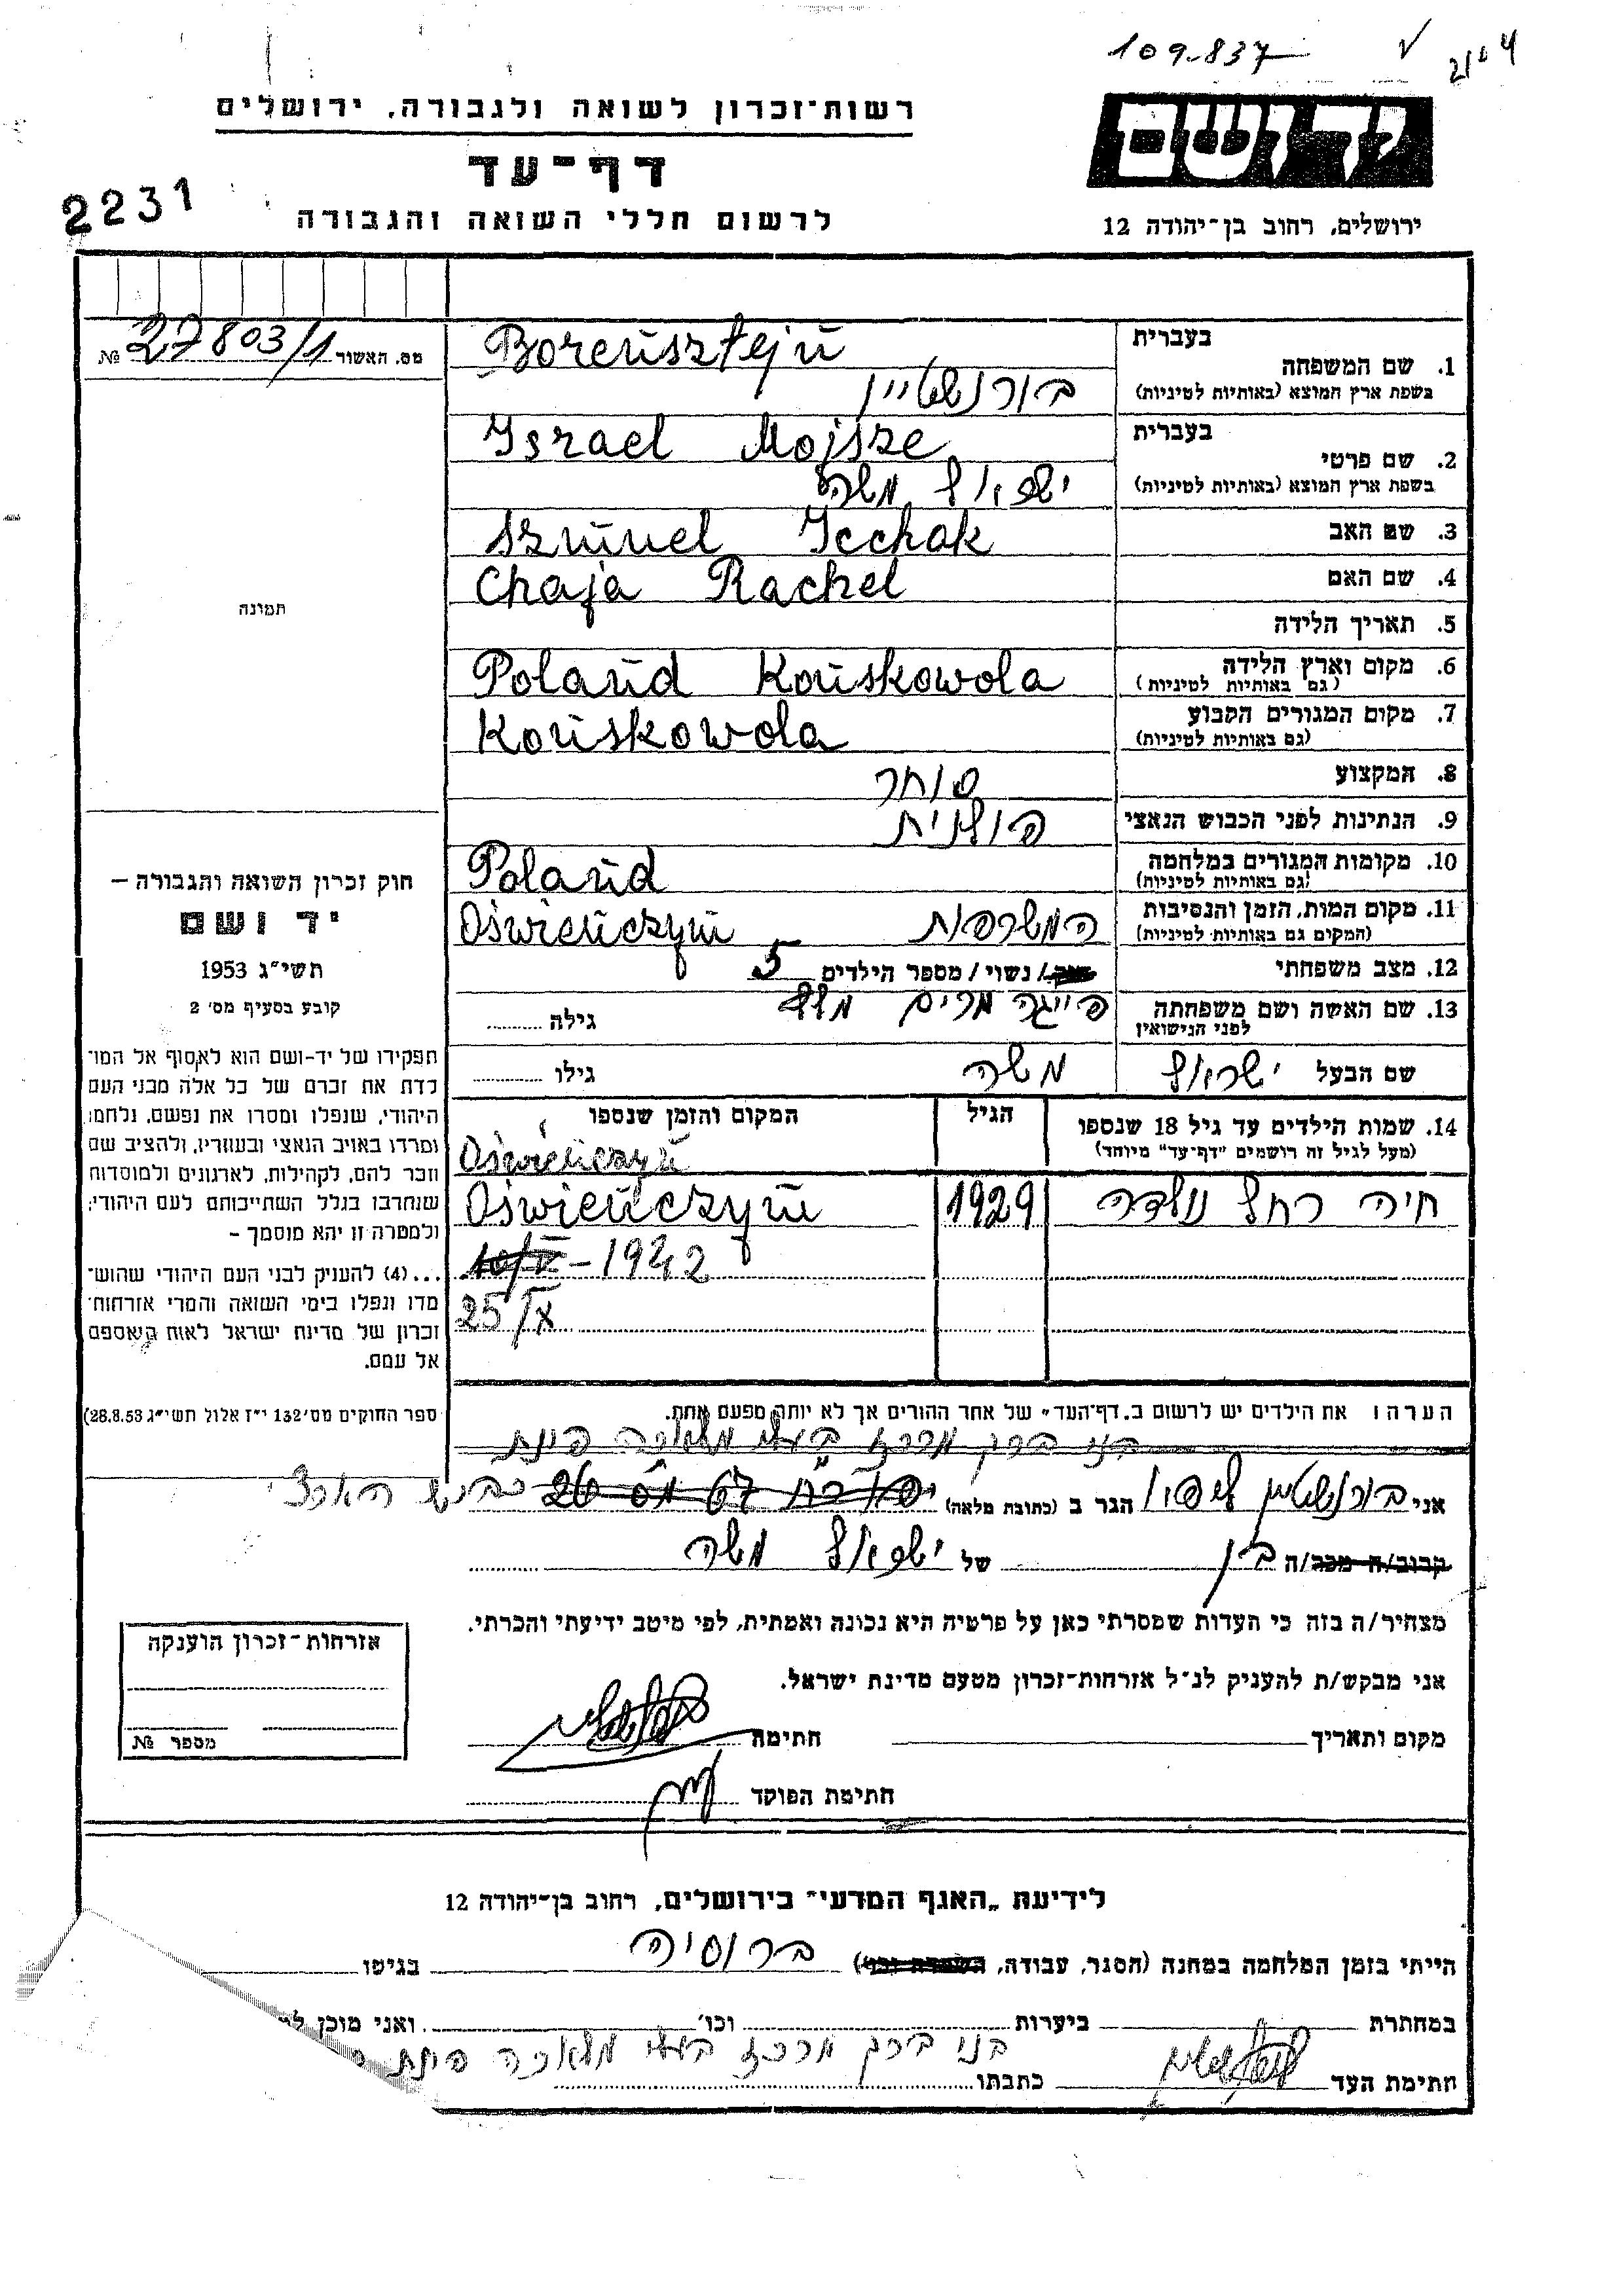 109.837
רשות־זכרון לשואה ולגבורה, ירושלים
דף־עד
לרשום חללי השואה והגבורה
2231
יד ושם
ירושלים, רחוב בן־יהודה 12
מס. האשור 27803/1 №
תמונה
חוק זכרון השואה והגבורה –
יד ושם
תשי״ג 1953
קובע בסעיף מס׳ 2
תפקידו של יד-ושם הוא לאסוף אל המו־
לדת את זכרם של כל אלה מבני העם
היהודי, שנפלו ומסרו את נפשם, נלחמו
ומרדו באויב הנאצי ובעוזריו, ולהציב שם
וזכר להם, לקהילות, לארגונים ולמוסדות
שנחרבו בגלל השתייכותם לעם היהודי;
ולמטרה זו יהא מוסמך –
...(4) להעניק לבני העם היהודי שהוש־
מדו ונפלו בימי השואה והמרי אזרחות־
זכרון של מדינת ישראל לאות האספם
אל עמם.
ספר החוקים מס׳ 132 י״ז אלול תשי״ג 28.8.53)
בעברית
1. שם המשפחה
בשפת ארץ המוצא (באותיות לטיניות)
Borensztejn
בורנשטיין
בעברית
2. שם פרטי
בשפת ארץ המוצא (באותיות לטיניות)
Israel Mojsze
ישראל משה
3. שם האב
Szmuel Icchak
4. שם האם
Chaja Rachel
5. תאריך הלידה
6. מקום וארץ הלידה
(גם באותיות לטיניות)
Poland Końskowola
7. מקום המגורים הקבוע
(גם באותיות לטיניות)
Końskowola
8. המקצוע
סוחר
9. הנתינות לפני הכבוש הנאצי
פולנית
10. מקומות המגורים במלחמה
(גם באותיות לטיניות)
Poland
11. מקום המות, הזמן והנסיבות
(המקום גם באותיות לטיניות)
המשרפות Oświenczym
12. מצב משפחתי
/ נשוי / מספר הילדים 5
13. שם האשה ושם משפחתה
לפני הנישואין
פייגה מרים גילה
שם הבעל ישראל משה גילו
14. שמות הילדים עד גיל 18 שנספו
(מעל לגיל זה רושמים "דף־עד" מיוחד)
הגיל
המקום והזמן שנספו
Oświenczym
חיה רחל נולדה 1929 Oświenczym
10/V - 1942
25/X
הערה: את הילדים יש לרשום ב„דף־העד״ של אחד ההורים אך לא יותר מפעם אחת.
בני ברק מרכז בעלי מלאכה פינת
אני בורנשטיין הגר ב (כתובת מלאה) 67 26 כביש
קרוב/ה מכר/ה בן של ישראל משה
מצהיר/ה בזה כי העדות שמסרתי כאן על פרטיה היא נכונה ואמתית, לפי מיטב ידיעתי והכרתי.
אני מבקש/ת להעניק לנ״ל אזרחות־זכרון מטעם מדינת ישראל.
מקום ותאריך חתימה
חתימת הפוקד
אזרחות־זכרון הוענקה
מספר №
לידיעת „האגף המדעי״ בירושלים, רחוב בן־יהודה 12
הייתי בזמן המלחמה במחנה (הסגר, עבודה, ) ברוסיה בגיטו
במחתרת ביערות וכו׳ ואני מוכן
בני ברק מרכז בעלי מלאכה פינת
חתימת העד כתבתו